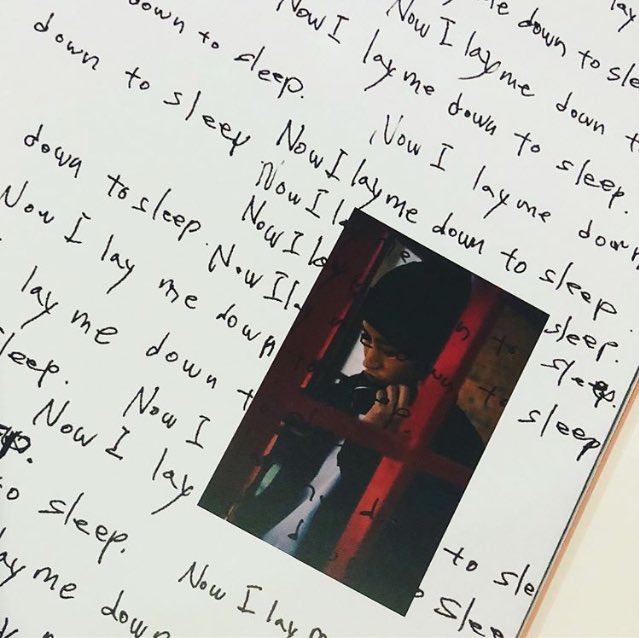 lay
me down to sle
Now I lay me down t
Now I lay me down to sleep.
down to sleep. Now I lay me down
down to sleep Now I lay me down to sleep.
Now I l sleep.
Now I lay to sleep.
down to sleep. Now I la to sleep
Now I lay me down
lay me down to
leep. Now I to sle
Now I lay o sleep
p.
to sleep. Now I lay m
lay me down